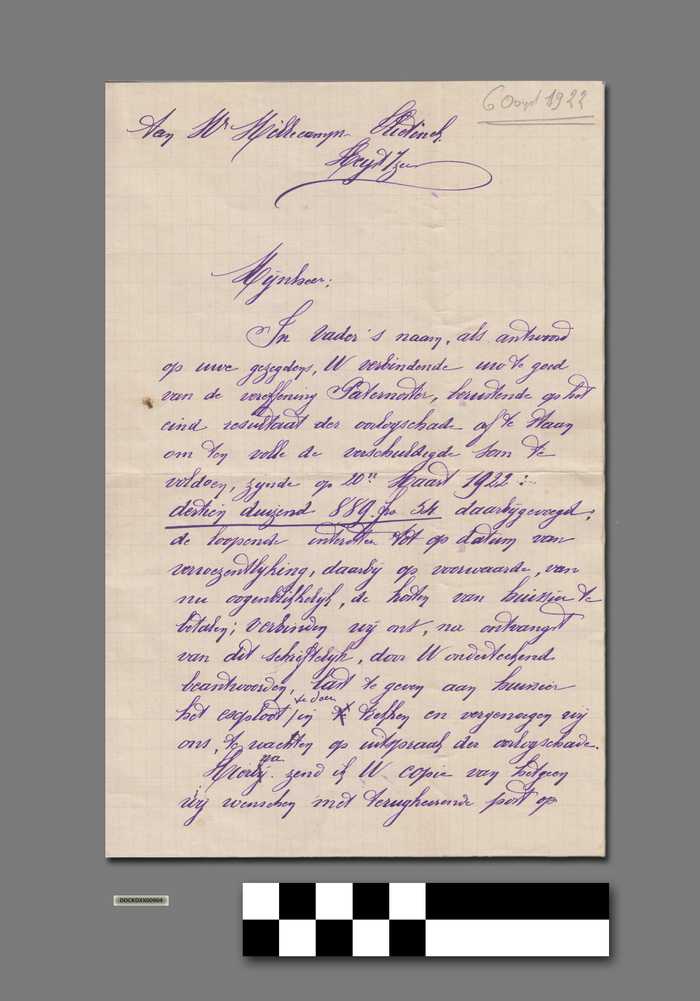 6 Oogst 1922
Aan Mr Millecamp
Heyst /zee
Mijnheer:
In Vader's naam, als antwoord
op uwe gezegdens, U verbindende uw te goed
van de vereffening Paternoster, berustende op het
eind resultaat der oorlogschade af te staan
om ten volle de verschuldigde som te
voldoen, zynde op 20en Maart 1922:
dertien duizend 889 fr 54 daarbijgevoegd,
de loopende intresten tot op datum van
verwezentlyking, daarby op voorwaarde, van
nu oogenblikkelyk, de kosten van huissier te
betalen; Verbinden wij ons, na ontvangst
van dit schriftelyk, door U onderteekend
beantwoorden, last te geven aan huissier
het exploot in te doen trekken en vergenoegen wij
ons, te wachten op uitspraak der oorlogschade.
Hierna zend ik U copie van hetgeen
wij wenschen met terugkeerende post op
DOCKDXX00904